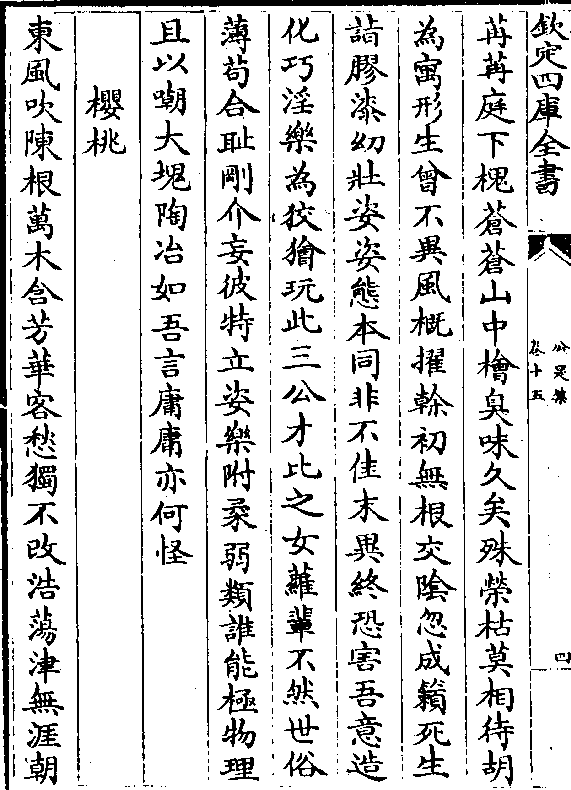 欽定四庫全書
公是集
卷十五
四
苒苒庭下槐蒼蒼山中檜臭味久矣殊榮枯莫相待胡
為寓形生曾不異風概擢榦初無根交陰忽成籟死生
詣膠漆幼壯姿姿態本同非不佳末異終恐害吾意造
化巧淫樂為狡獪玩此三公才比之女蘿輩不然世俗
薄苟合耻剛介妄彼特立姿樂附桑弱類誰能極物理
且以嘲大塊陶冶如吾言庸庸亦何怪
櫻桃
東風吹陳根萬木含芳華客愁獨不改浩蕩津無涯朝